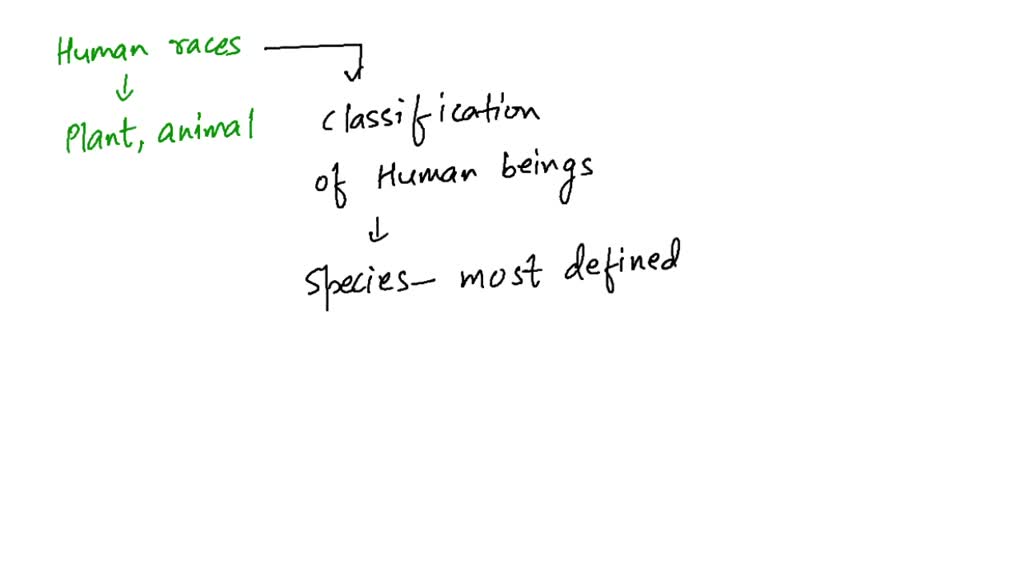 Human races
Plant, animal
classification
of Human beings
Species- most defined